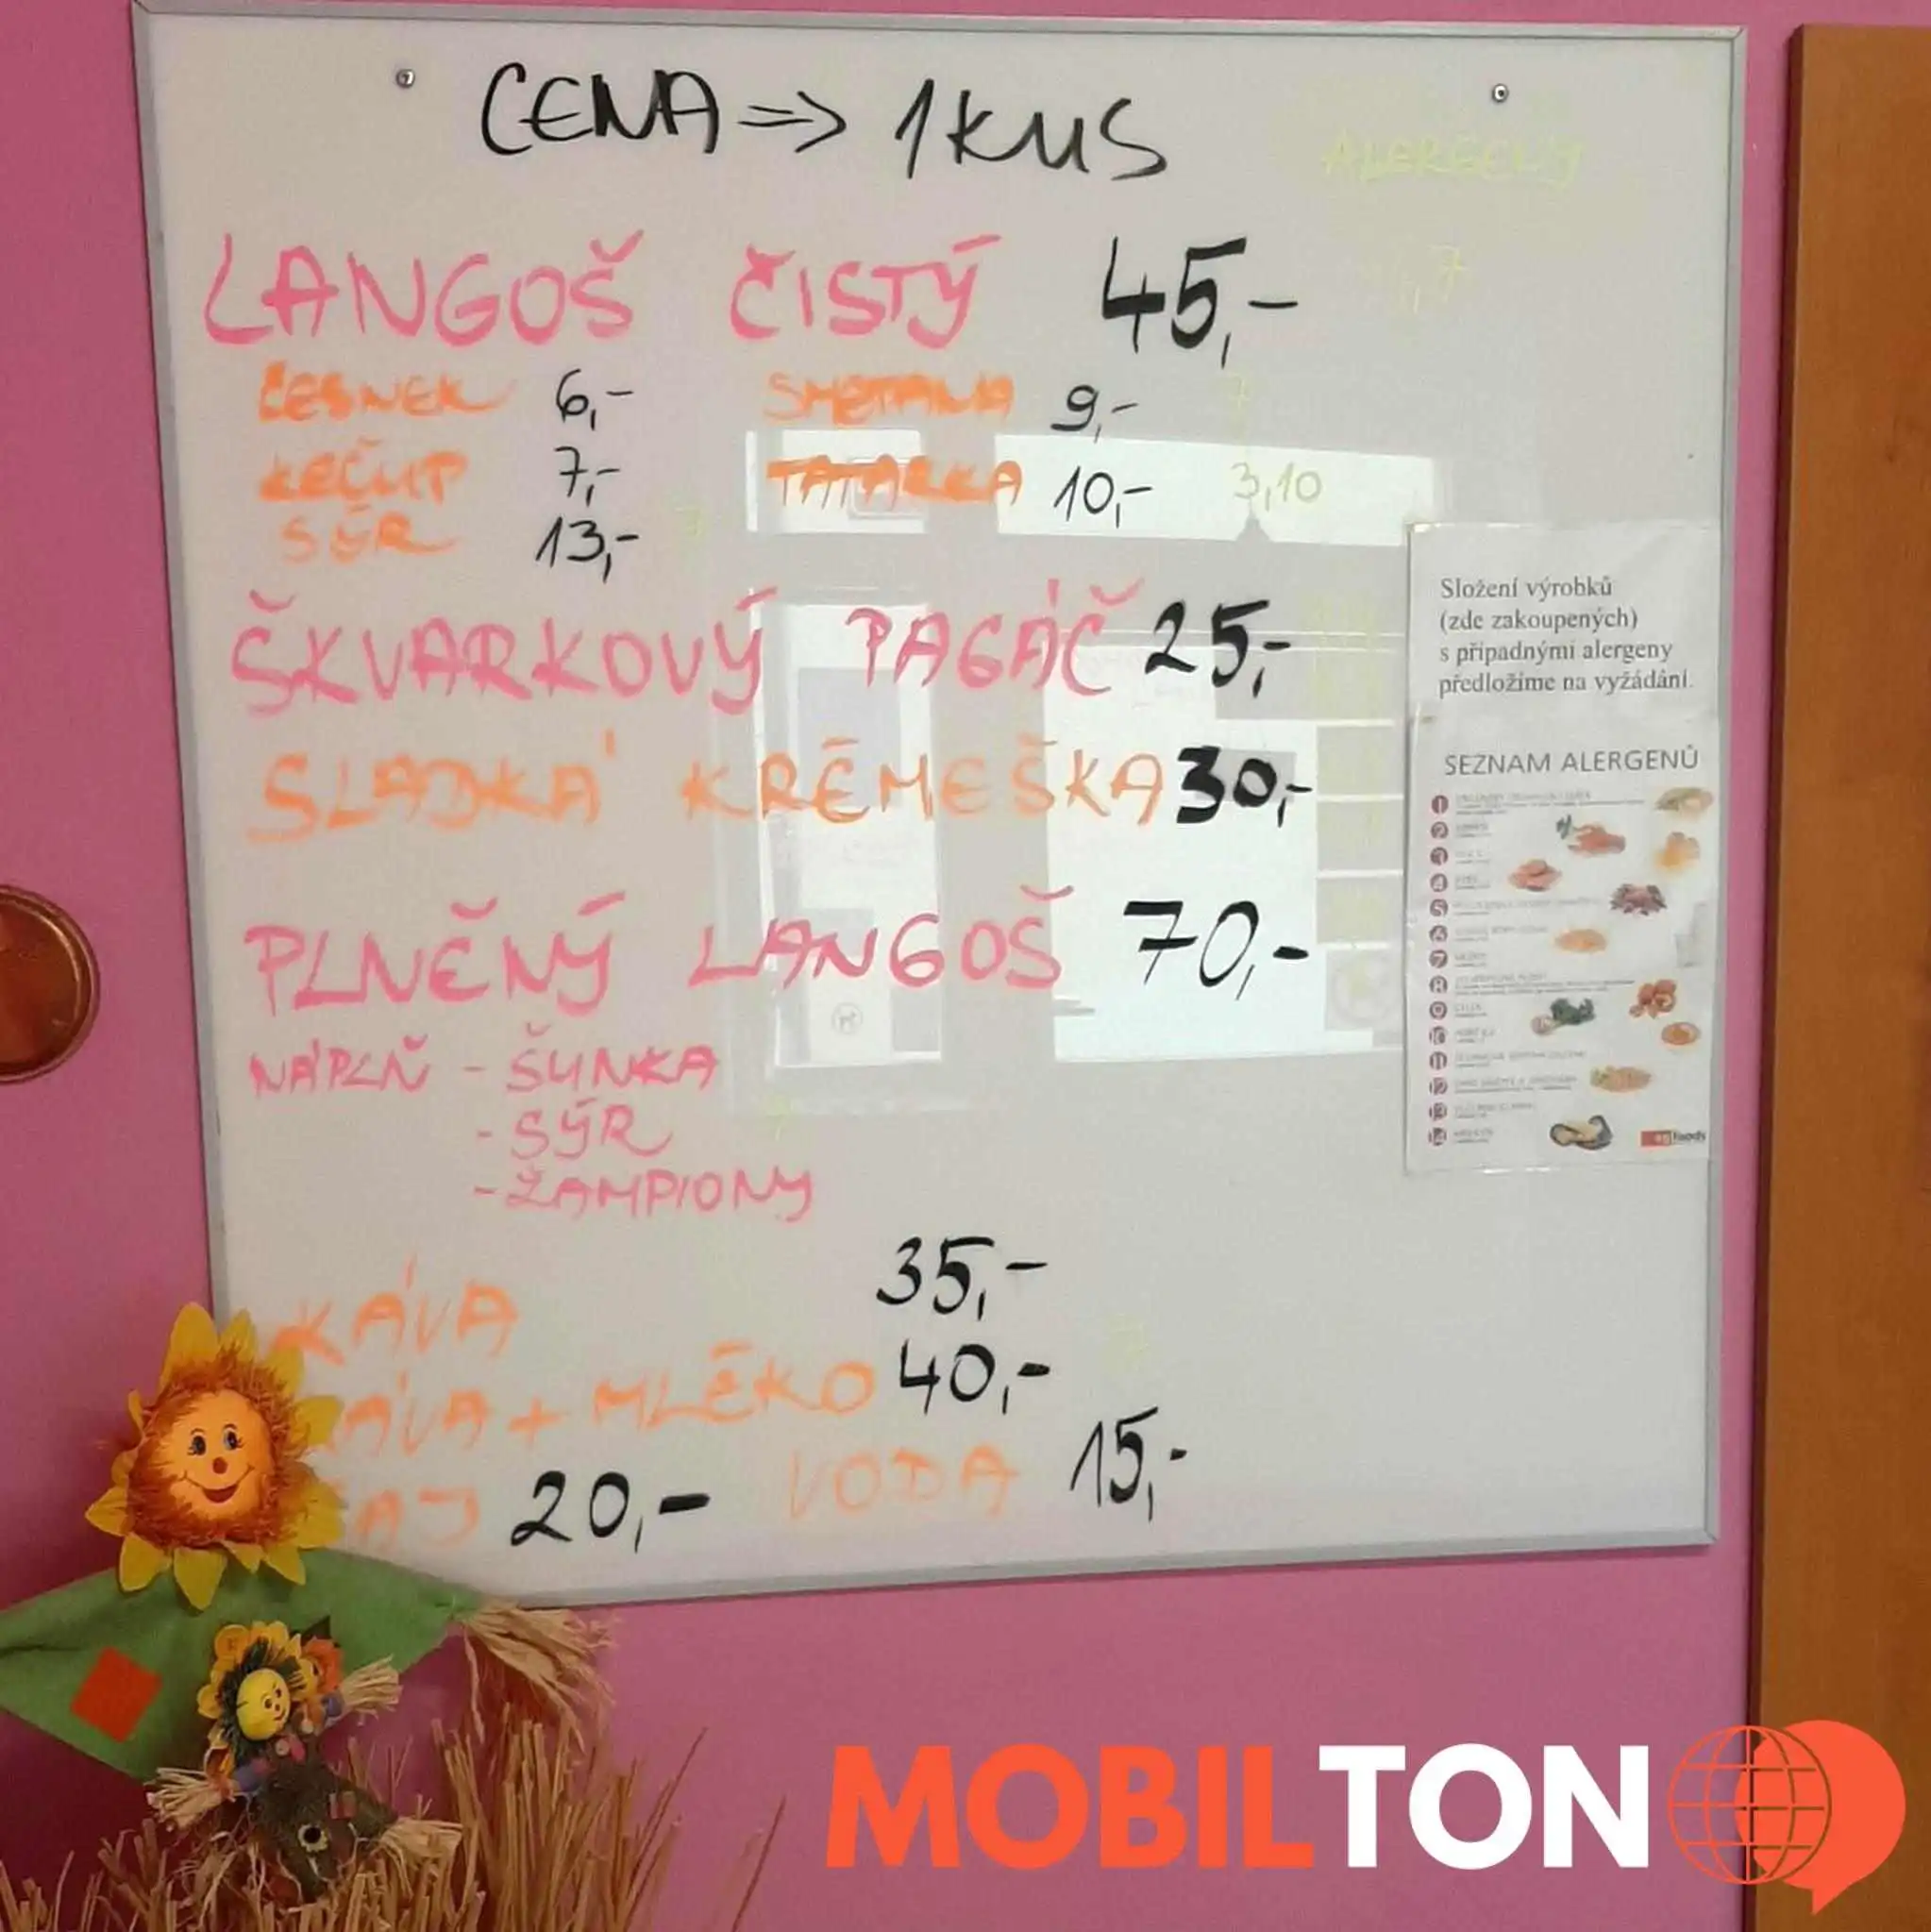 CENA => 1 KUS
ALERGENY
LANGOŠ ČISTÝ 45,- 1,7
ČESNEK 6,- SMETANA 9,- 7
KEČUP 7,- TATARKA 10,- 3,10
SÝR 13,- 7
ŠKVARKOVÝ PAGÁČ 25,-
SLADKÁ KRÉMEŠKA 30,-
PLNĚNÝ LANGOŠ 70,-
NÁPLŇ - ŠUNKA
- SÝR 7
- ŽAMPIONY
KÁVA 35,-
ÁVA + MLÉKO 40,-
AJ 20,- VODA 15,-
Složení výrobků
(zde zakoupených)
s případnými alergeny
předložíme na vyžádání.
SEZNAM ALERGENŮ
1
2
3
4
5
6
7
8
9
10
11
12
13
14
foods
MOBILTON